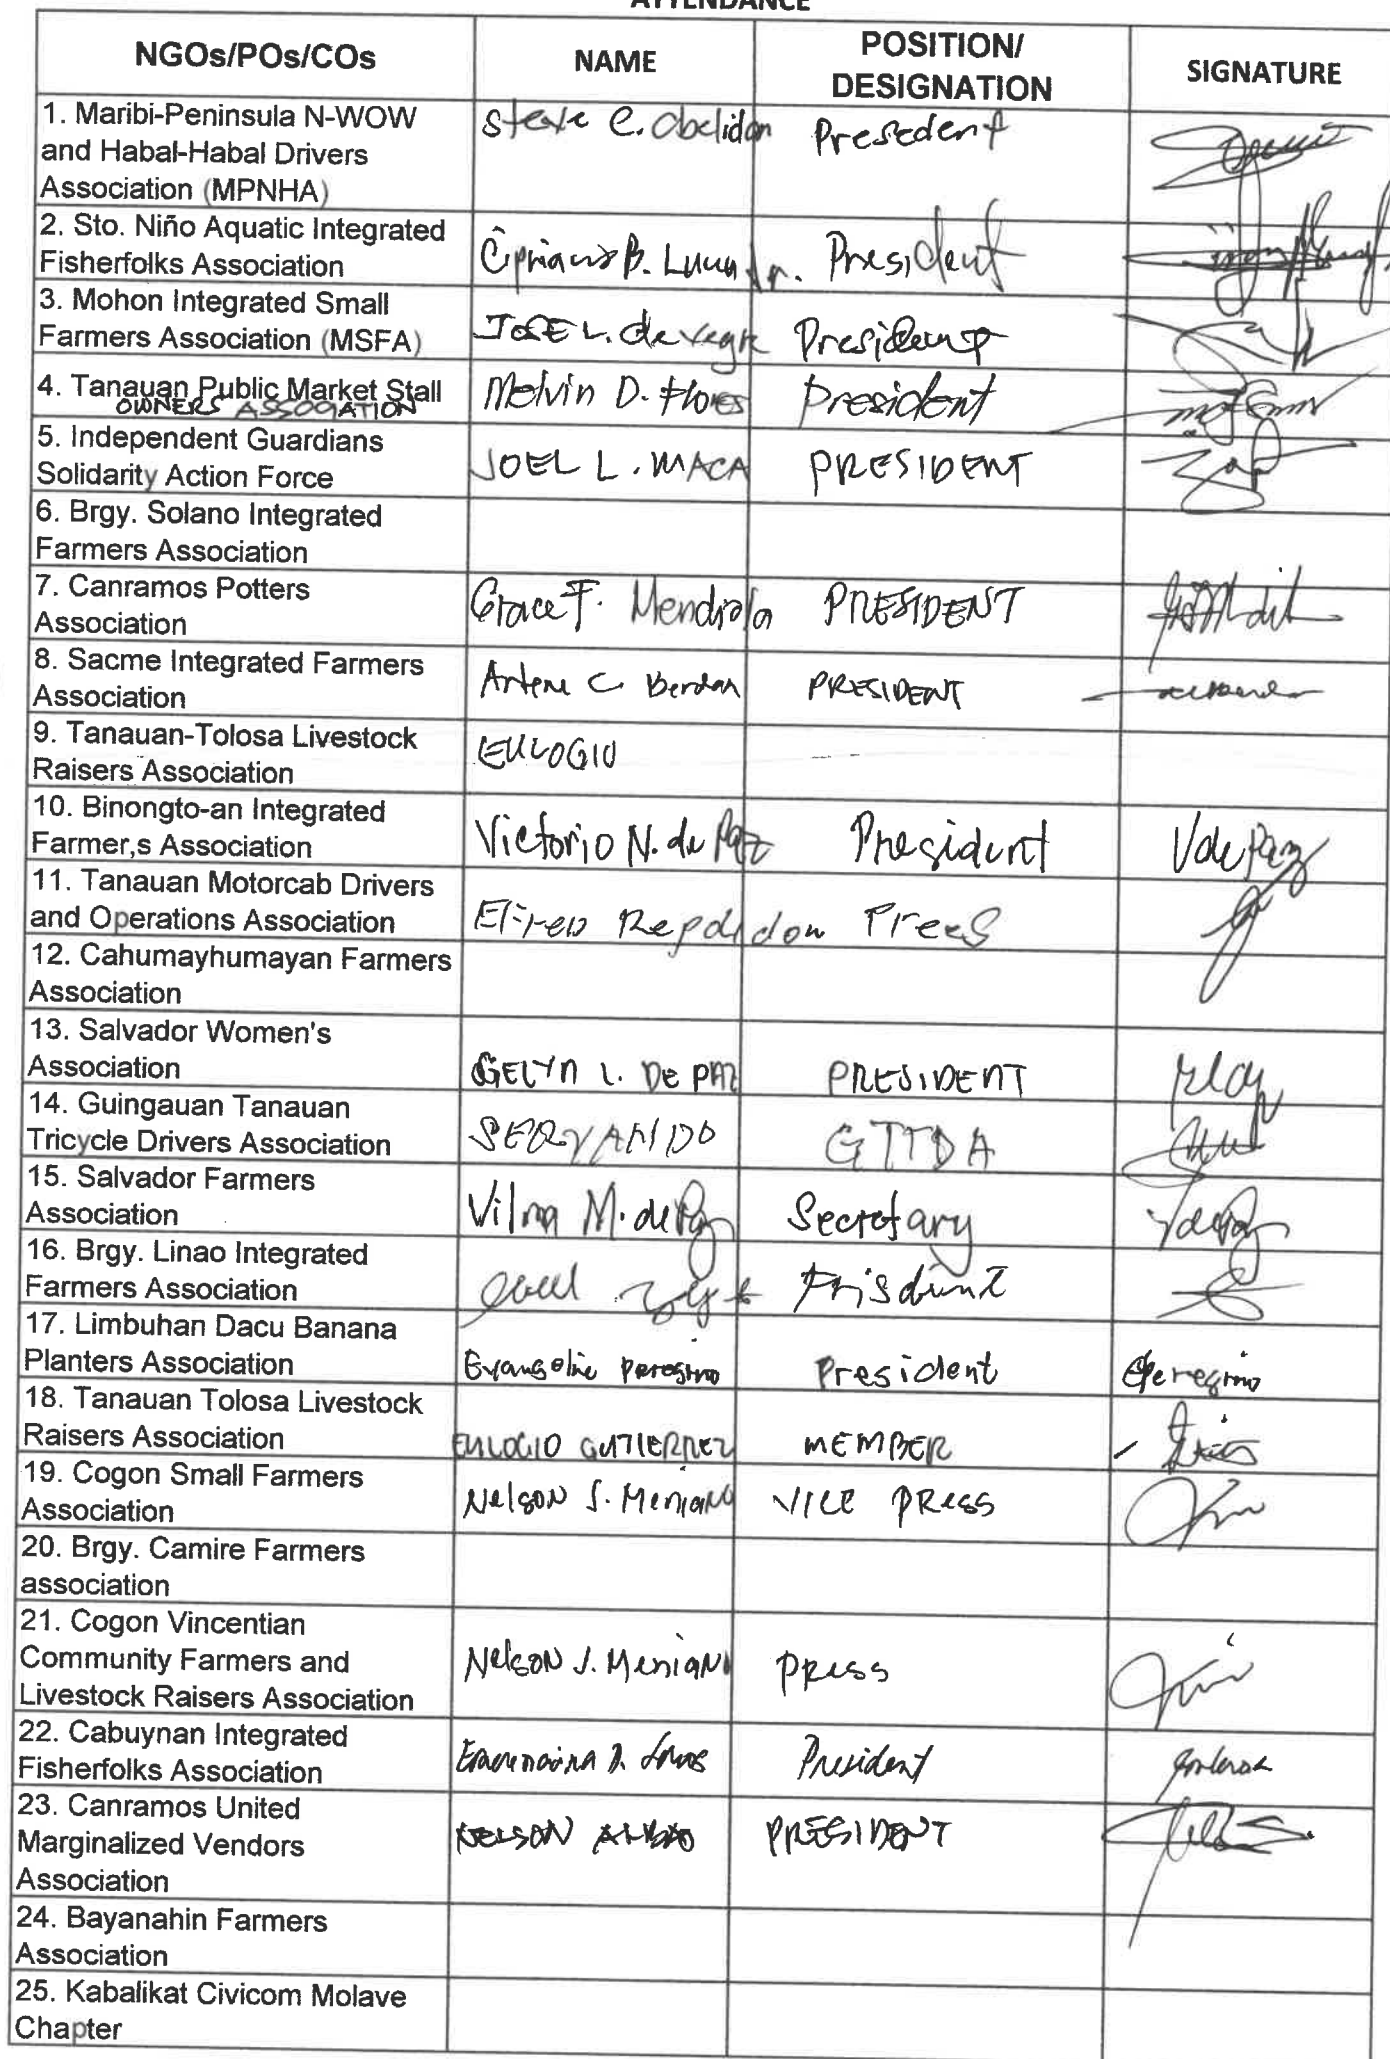 ATTENDANCE
NGOs/POs/COs NAME POSITION/ DESIGNATION SIGNATURE
1. Maribi-Peninsula N-WOW Steve C. Obelidon Presedent
and Habal-Habal Drivers
Association (MPNHA)
2. Sto. Niño Aquatic Integrated
Fisherfolks Association Cipriano B. Lucua Jr. President
3. Mohon Integrated Small
Farmers Association (MSFA) JOSE L. de Veyra President
4. Tanauan Public Market Stall Melvin D. Flores President
OWNERS ASSOCIATION
5. Independent Guardians
Solidarity Action Force JOEL L. MACA PRESIDENT
6. Brgy. Solano Integrated
Farmers Association
7. Canramos Potters
Association Grace F. Mendiola PRESIDENT
8. Sacme Integrated Farmers
Association Artene C. Berdan PRESIDENT
9. Tanauan-Tolosa Livestock
Raisers Association EULOGIO
10. Binongto-an Integrated
Farmer,s Association Victorio N. de Paz President VdePaz
11. Tanauan Motorcab Drivers
and Operations Association Prees
12. Cahumayhumayan Farmers
Association
13. Salvador Women's
Association GELYN L. DE PAZ PRESIDENT
14. Guingauan Tanauan
Tricycle Drivers Association SERVANDO GTTDA
15. Salvador Farmers
Association Vilma M. de Paz Secretary VdePaz
16. Brgy. Linao Integrated
Farmers Association Prisdunt
17. Limbuhan Dacu Banana
Planters Association Evangeline Peregrino President EPeregrino
18. Tanauan Tolosa Livestock
Raisers Association EULOGIO GUTIERREZ MEMBER
19. Cogon Small Farmers
Association Nelson J. Meniano VICE PRESS
20. Brgy. Camire Farmers
association
21. Cogon Vincentian
Community Farmers and Nelson J. Meniano PRESS
Livestock Raisers Association
22. Cabuynan Integrated
Fisherfolks Association President
23. Canramos United
Marginalized Vendors NELSON PRESIDENT
Association
24. Bayanahin Farmers
Association
25. Kabalikat Civicom Molave
Chapter